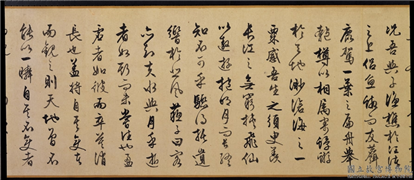 況吾與子漁樵於江渚
之上侶魚蝦而友麋
鹿駕一葉之扁舟舉
匏樽以相屬寄蜉蝣
於天地渺滄海之一
粟哀吾生之須臾羨
長江之無窮挾飛仙
以遨遊抱明月而長終
知不可乎驟得託遺
響於悲風蘇子曰客
亦知夫水與月乎逝
者如斯而未嘗往也盈
虛者如彼而卒莫消
長也蓋將自其變者
而觀之則天地曾不
能以一瞬自其不變者
國立故宮博物院